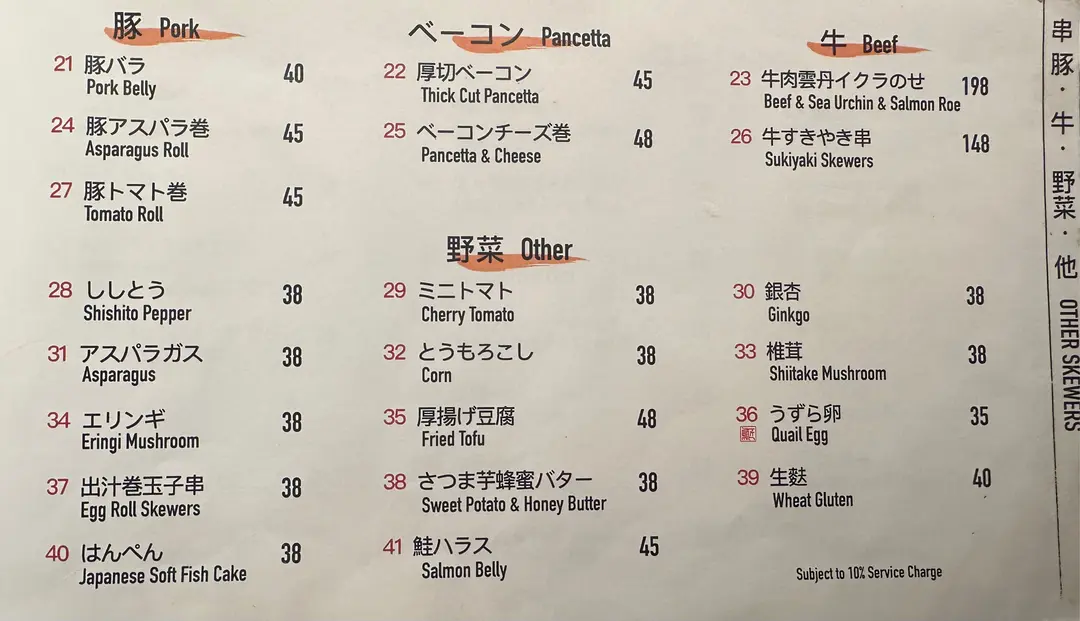 豚 Pork
21 豚バラ 40
Pork Belly
24 豚アスパラ巻 45
Asparagus Roll
27 豚トマト巻 45
Tomato Roll
ベーコン Pancetta
22 厚切ベーコン 45
Thick Cut Pancetta
25 ベーコンチーズ巻 48
Pancetta & Cheese
牛 Beef
23 牛肉雲丹イクラのせ 198
Beef & Sea Urchin & Salmon Roe
26 牛すきやき串 148
Sukiyaki Skewers
野菜 Other
28 ししとう 38
Shishito Pepper
31 アスパラガス 38
Asparagus
34 エリンギ 38
Eringi Mushroom
37 出汁巻玉子串 38
Egg Roll Skewers
40 はんぺん 38
Japanese Soft Fish Cake
29 ミニトマト 38
Cherry Tomato
32 とうもろこし 38
Corn
35 厚揚げ豆腐 48
Fried Tofu
38 さつま芋蜂蜜バター 38
Sweet Potato & Honey Butter
41 鮭ハラス 45
Salmon Belly
30 銀杏 38
Ginkgo
33 椎茸 38
Shiitake Mushroom
36 うずら卵 35
Quail Egg
39 生麩 40
Wheat Gluten
Subject to 10% Service Charge
串 豚・牛・野菜・他 OTHER SKEWERS